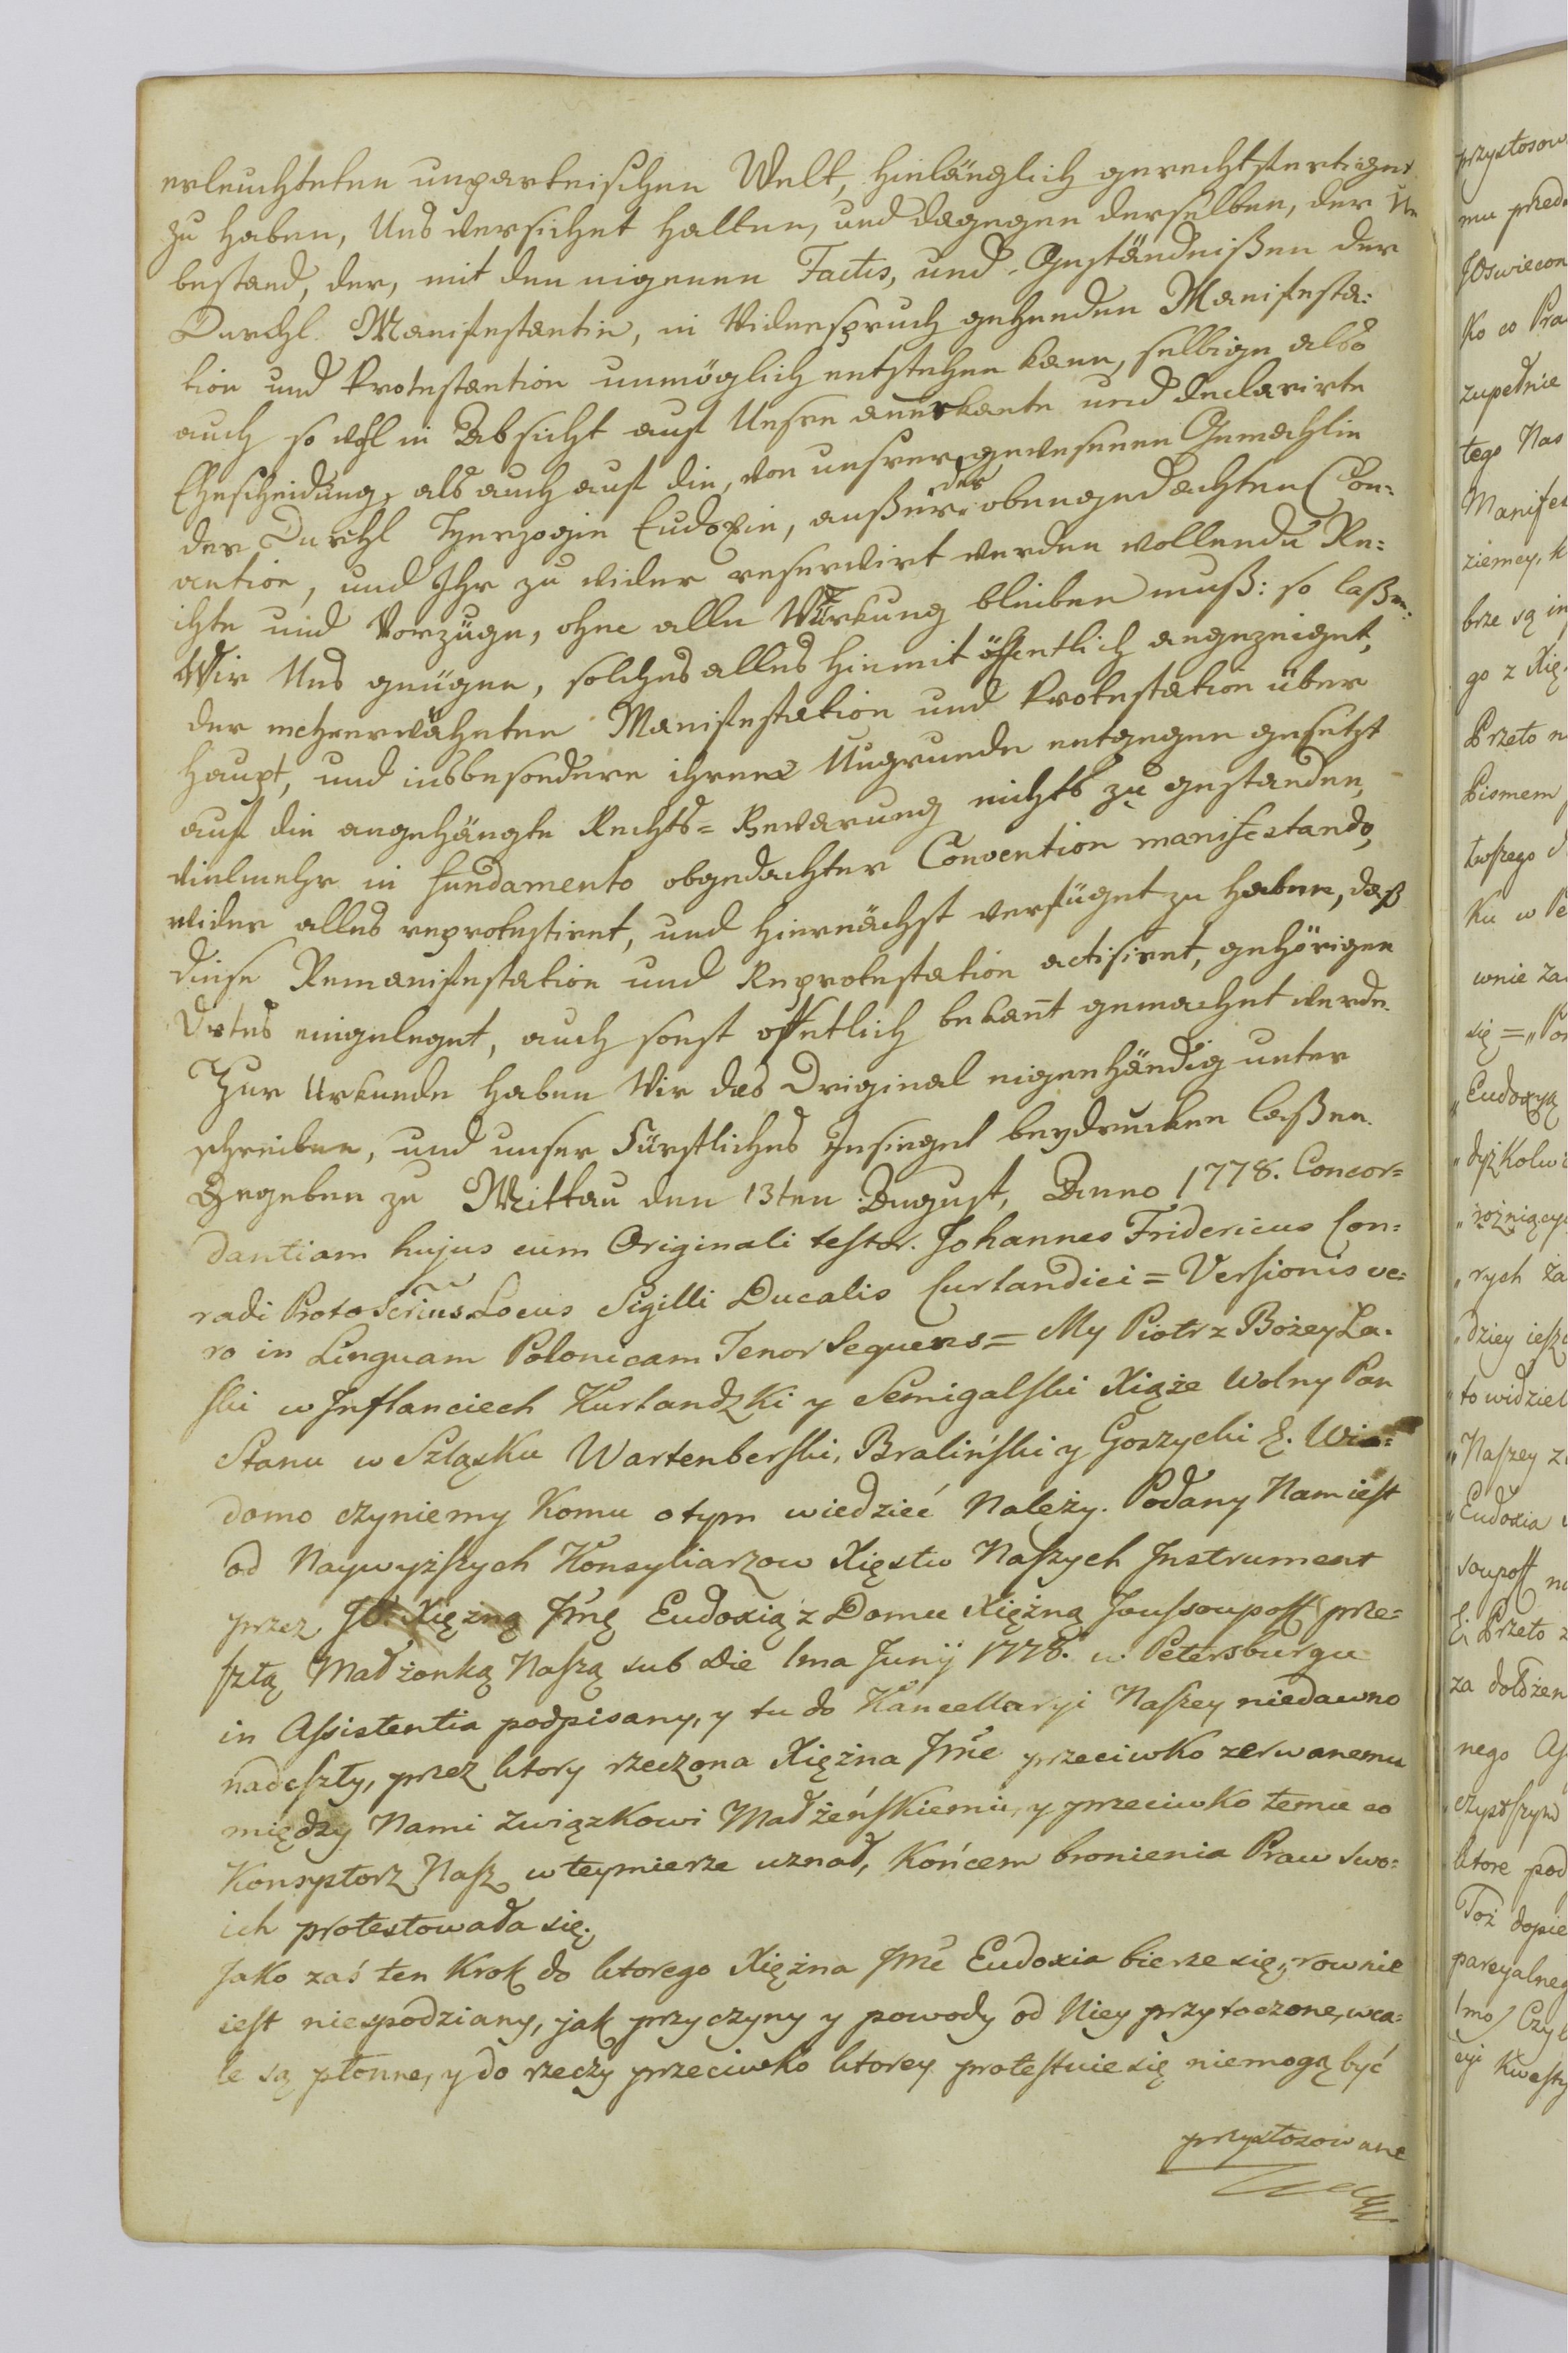 erleuchteten unparteischen Welt, hinlänglich gerechtfertiget
zu haben, Uns versichert halten, und dagegen derselben, der Un
bestand, der, mit den eigenen Factis, und Geständnißen der
Durchl. Manifestantin, in Widerspruch gehenden Manifesta:
tion und Protestation unmöglich entstehen kann, selbige also
auch so wohl in Absicht auf Unsre anerkante und declarirte
Ehescheidung, als auch auf die, von unsrer gewesenen Gemahlin
der Durchl Herzogin Eudoxie, außer der obengedachten Con:
vention, und Ihr zu wider reservirt werden wollende Re:
chte und Vorzüge, ohne alle Würkung bleiben muß: so laßen
Wir Uns genügen, solches alles hiemit öffentlich angezeiget,
der mehrerwähnten Manifestation und Protestation über
haupt, und insbesondere ihrem Ungrunde entgegen gesetzt
auf die angehängte Rechts=Bewarung nichts zu gestanden,
vielmehr in fundamento obgedachter Convention manifestando,
wider alles reprotestiret, und hiernächst verfüget zu haben, daß
diese Remanifestation und Reprotestation actisiret, gehörigen
Ortes eingeleget, auch sonst öffetlich bekant gemachet werde.
Zur Urkunde haben Wir das Original eigenhändig unter
schreiben, und unser Fürstliches Insiegel beydrucken laßen.
Gegeben zu Mittau den 13ten August, Anno 1778. Concor=
dantiam hujus cum Originali testor. Johannes Fridericus Con:
radi Proto Scrius Locus Sigilli Ducalis Curlandici = Versionis ve:
ro in Linguam Polonicam Tenor Sequens = My Piotr z Bożey Ła.
ski w Jnflanciech Kurlandzki y Semigalski Xiąże Wolny Pan
Stanu w Szląsku Wartenberski, Braliński y Goszycki &. Wia:
domo czyniemy Komu o tym wiedzieć Należy. Podany Nam iest
od Naywyższych Konsyliarzow Xięstw Naszych Jnstrument
przez JO. Xiężną Jmę Eudoxią z Domu Xiężną Joussoupoff prze=
szłą Małżonką Naszą sub Die 1ma Junÿ 1778. w Petersburgu
in Assistentia podpisany, y tu do Kancellaryi Naszey niedawno
nadeszły, przez ktory rzeczona Xiężna Jmc przeciwko zerwanemu
między Nami związkowi Małżeńskiemu, y przeciwko temu co
Konsystorz Nasz w teymierze uznał, Końcem bronienia Praw swo:
ich protestowała się.
Jako zaś ten Krok do ktorego Xiężna Jmć Eudoxia bierze się, rownie
iest niespodziany, jak przyczyny y powody od Niey przytoczone, wca:
le są płonne, y do rzeczy przeciwko ktorey protestuie się niemogą być
przystosowane